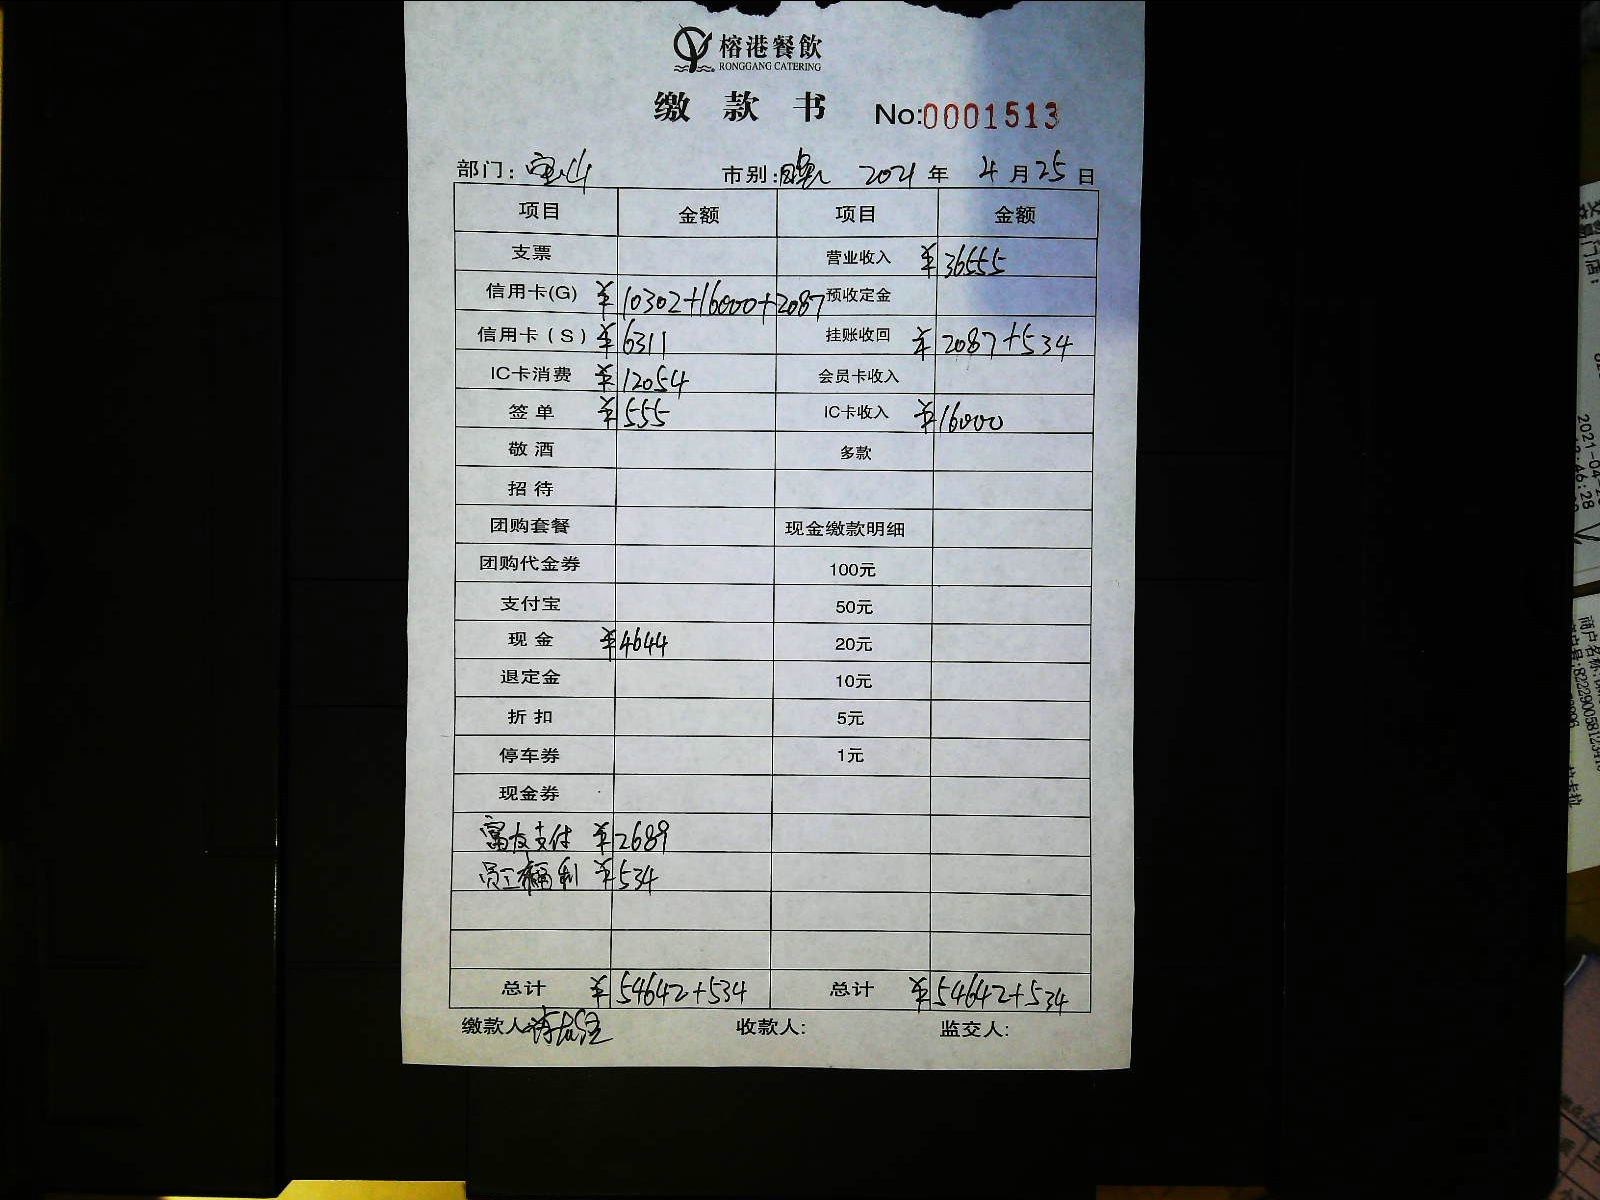 榕港餐飲
RONGGANG CATERING
缴款书 No:0001513
部门: 宝山 市别: 晚 2021年 4月25日
项目 金额 项目 金额
支票 营业收入 ¥36555
信用卡(G) ¥10302+16000+2087 预收定金
信用卡(S) ¥6311 挂账收回 ¥2087+534
IC卡消费 ¥12054 会员卡收入
签单 ¥555 IC卡收入 ¥16000
敬酒 多款
招待
团购套餐 现金缴款明细
团购代金券 100元
支付宝 50元
现金 ¥4644 20元
退定金 10元
折扣 5元
停车券 1元
现金券
富友支付 ¥2689
员工福利 ¥534
总计 ¥54642+534 总计 ¥54642+534
缴款人 收款人: 监交人:
交易门店:
2021-04-2
:46:28
商户名称: